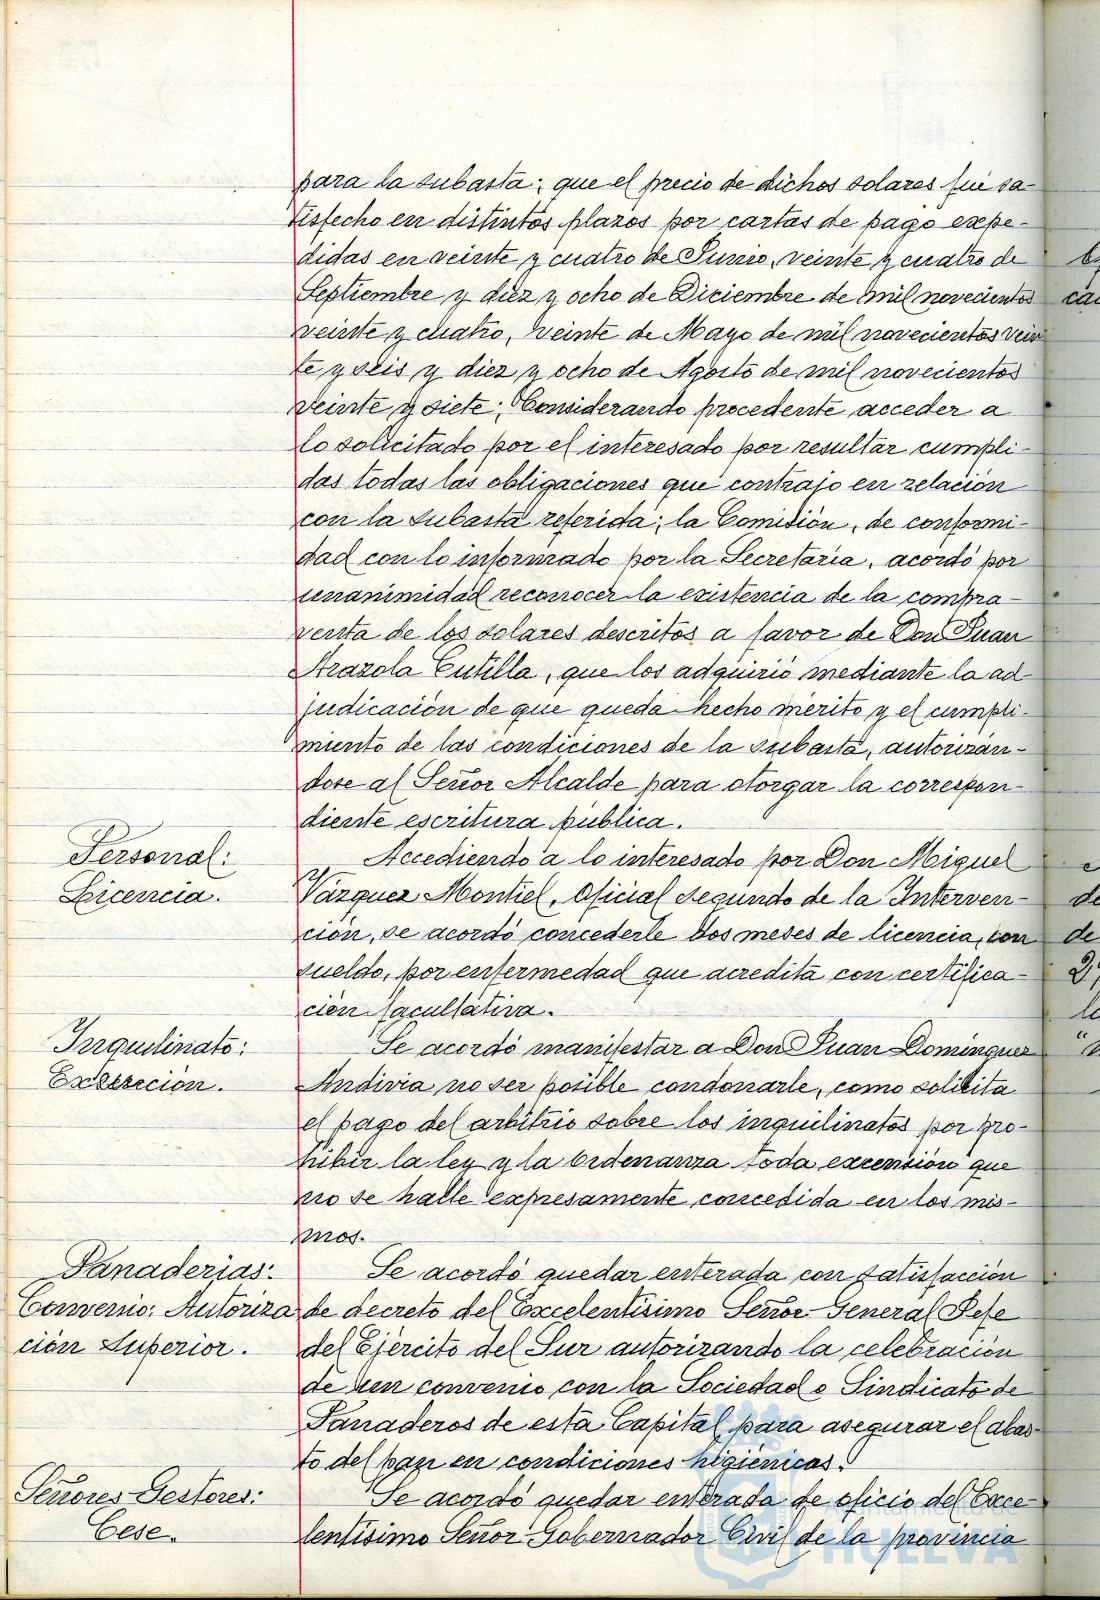 para la subasta; que el precio de dichos solares fué sa-
tisfecho en distintos plazos por cartas de pago expe-
didas en veinte y cuatro de Junio, veinte y cuatro de
Septiembre y diez y ocho de Diciembre de mil novecientos
veinte y cuatro, veinte de Mayo de mil novecientos vein
te y seis y diez y ocho de Agosto de mil novecientos
veinte y siete; Considerando procedente acceder a
lo solicitado por el interesado por resultar cumpli-
das todas las obligaciones que contrajo en relación
con la subasta referida; la Comisión, de conformi-
dad con lo informado por la Secretaría, acordó por
unanimidad reconocer la existencia de la compra-
venta de los solares descritos a favor de Don Juan
Arazola Cutilla, que los adquirió mediante la ad-
judicación de que queda hecho mérito y el cumpli-
miento de las condiciones de la subasta, autorizán-
dose al Señor Alcalde para otorgar la correspon-
diente escritura pública.
Personal:
Licencia.
Accediendo a lo interesado por Don Miguel
Vázquez Montiel, Oficial segundo de la Interven-
ción, se acordó concederle dos meses de licencia, con
sueldo, por enfermedad que acredita con certifica-
ción facultativa.
Inquilinato:
Se acordó manifestar a Don Juan Domínguez
Andivia no ser posible condonarle, como solicita
el pago del arbitrio sobre los inquilinatos por pro-
hibir la ley y la Ordenanza toda excensión que
no se halle expresamente concedida en los mis-
mos.
Panaderías:
Convenio: Autoriza
ción Superior.
Se acordó quedar enterada con satisfacción
de decreto del Excelentísimo Señor General Jefe
del Ejército del Sur autorizando la celebración
de un convenio con la Sociedad o Sindicato de
Panaderos de esta Capital para asegurar el abas-
to del pan en condiciones higiénicas.
Señores Gestores:
Cese.
Se acordó quedar enterada de oficio del Exce-
lentísimo Señor Gobernador Civil de la provincia
Ayuntamiento de
HUELVA